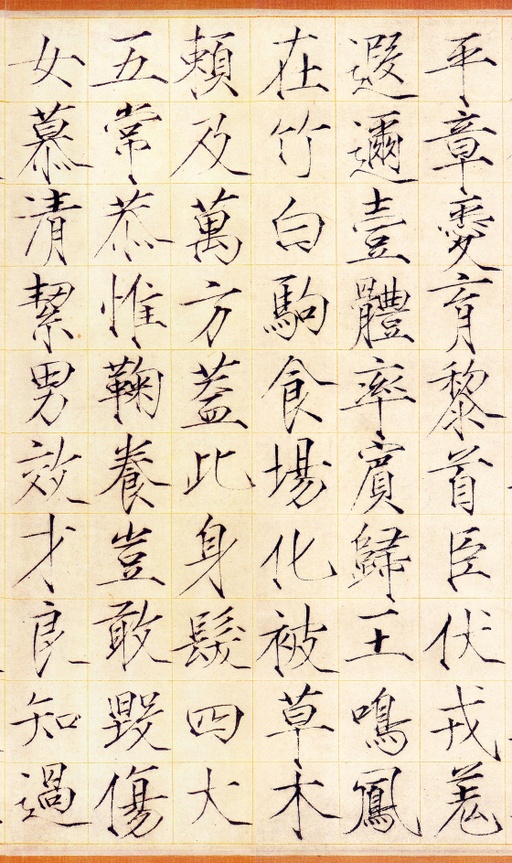 平章愛育黎首臣伏戎羌
遐邇壹體率賓歸王鳴鳳
在竹白駒食場化被草木
賴及萬方蓋此身髮四大
五常恭惟鞠養豈敢毀傷
女慕清絜男效才良知過